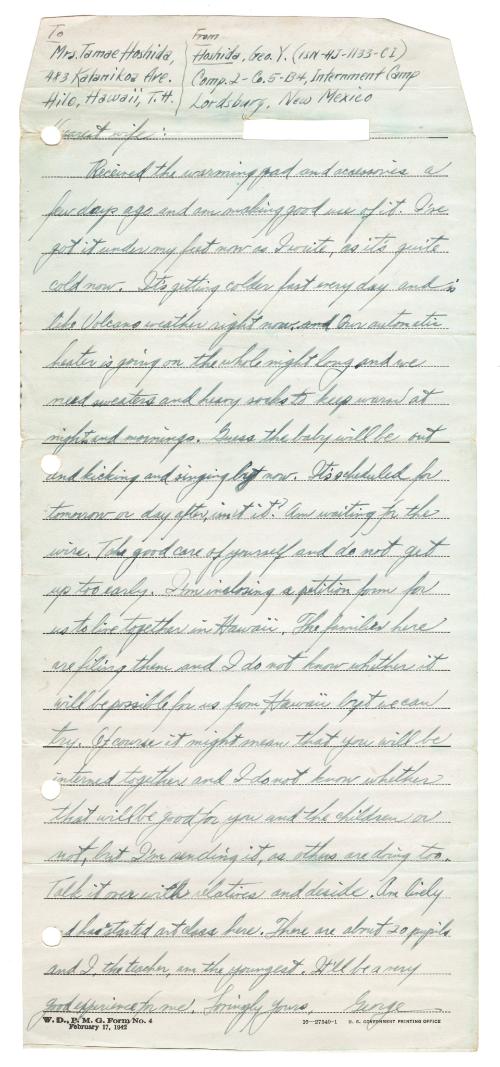 To
Mrs. Tamae Hoshida,
483 Kalanikoa Ave.
Hilo, Hawaii, T.H.
From
Hoshida, Geo. Y. (ISN-HJ-1133-CI)
Comp. 2-Co. 5-B4, Internment Camp
Lordsburg, New Mexico
Dearest wife:
Received the warming pad and accessories a
few days ago and am making good use of it. I've
got it under my feet now as I write, as it's quite
cold now. Its getting colder fast every day and is
like Volcano weather right now. and Our automatic
heater is going on the whole night long and we
need sweaters and heavy socks to keep warm at
night and mornings. Guess the baby will be out
and kicking and singing by now. Its scheduled for
tomorrow or day after, isnt it? Am waiting for the
wire. Take good care of yourself and do not get
up too early. I'm inclosing a petition form for
us to live together in Hawaii. The families here
are filing them and I do not know whether it
will be possible for us from Hawaii but we can
try. Of course it might mean that you will be
interned together and I do not know whether
that will be good for you and the children or
not, but I'm sending it, as others are doing too.
Talk it over with relatives and deside. Am lively
and has started art class here. There are about 20 pupils
and I, the teacher, am the youngest. It'll be a very
good experience for me. Lovingly yours, George
W. D., P. M. G. Form No. 4
February 17, 1942
16—27540-1 U. S. GOVERNMENT PRINTING OFFICE